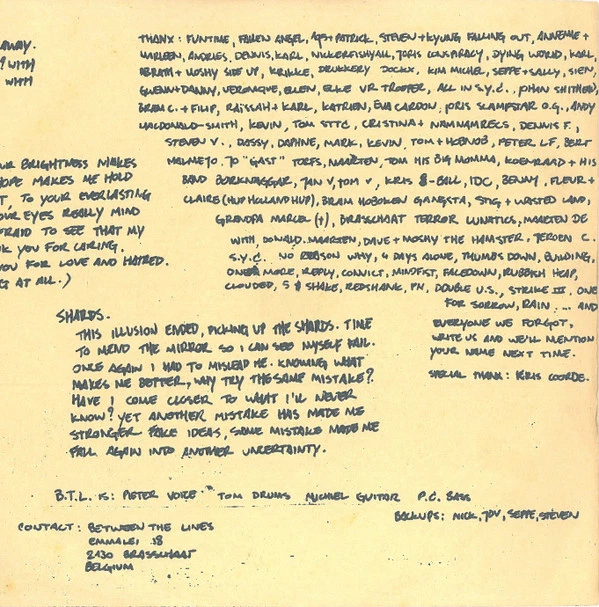 AWAY.
? WITH
WITH
THANX : FUNTIME, FALLEN ANGEL, AGI+PATRICK, STEVEN+KYUNG FALLING OUT, ANNEMIE +
MARLEEN, ANDRIES, DENNIS, KARL, NICKERFISHYALL, JORIS CONSPIRACY, DYING WORLD, KARL,
+ MOSHY SIDE UP, KRIKKE, DRUKKERY DOCKX, KIM MICHEL, SEPPE+SALLY, SIEN,
GWENN+DANNY, VERONIQUE, ELLEN, ELKE V.R. TROEPER, ALL IN S.Y.C., JOHAN SMITHEAD,
BRAM C. + FILIP, RAISSAH + KARL, KATRIEN, EVA CARDON, JORIS SLAMPSTAR O.G., ANDY
MACDONALD-SMITH, KEVIN, TOM STTC, CRISTINA + NAMNAMRECS, DENNIS F.,
STEVEN V., DASSY, DAPHNE, MARK, KEVIN, TOM + HOBNOB, PETER LF, BERT
MALMEJO, JO "GAST" TORFS, MAARTEN, TOM HIS BIG MOMMA, KOENRAAD + HIS
BAND BORKNAGGAR, JAN V, TOM V, KRIS 8-BALL, IDC, BENNY, FLEUR +
CLAIRE (HUP HOLLAND HUP), BRAM HOBOKEN GANGSTA, STIG + WASTED LAND,
GRANDPA MARCEL (†), BRASSCHAAT TERROR LUNATICS, MAARTEN DE
WITH, DONALD. MAARTEN, DAVE + MOSHY THE HAMSTER, JEROEN C.
S.Y.C. NO REASON WHY, 4 DAYS ALONE, THUMBS DOWN, BUILDING,
ONE MORE, REPLY, CONVICT, MINDFIST, FACEDOWN, RUBBISH HEAP,
CLOUDED, SHAKE, REDSHANK, PN, DOUBLE U.S., STRIKE III, ONE
FOR SORROW, RAIN ... AND
EVERYONE WE FORGOT,
WRITE US AND WE'LL MENTION
YOUR NAME NEXT TIME.
SPECIAL THANX : KRIS COORDE.
UR BRIGHTNESS MAKES
HOPE MAKES ME HOLD
T, TO YOUR EVERLASTING
OUR EYES REALLY MIND
FRAID TO SEE THAT MY
K YOU FOR CARING.
YOU FOR LOVE AND HATRED.
AT ALL.)
SHARDS.
THIS ILLUSION ENDED, PICKING UP THE SHARDS. TIME
TO MEND THE MIRROR SO I CAN SEE MYSELF FAIL.
ONCE AGAIN I HAD TO MISLEAD ME. KNOWING WHAT
MAKES ME BETTER, WHY TRY THE SAME MISTAKE?
HAVE I COME CLOSER TO WHAT I'LL NEVER
KNOW? YET ANOTHER MISTAKE HAS MADE ME
STRONGER FAKE IDEAS, SAME MISTAKE MADE ME
FALL AGAIN INTO ANOTHER UNCERTAINTY.
B.T.L. IS : PIETER VOICE TOM DRUMS MICHAEL GUITAR P.C. BASS
BACKUPS : NICK, JOV, SEPPE, STEVEN
CONTACT : BETWEEN THE LINES
EMMALEI 18
2930 BRASSCHAAT
BELGIUM